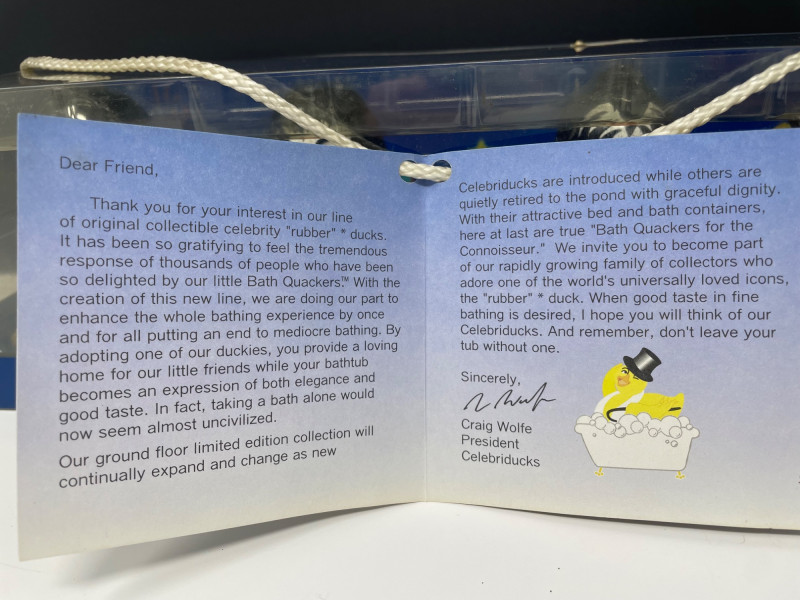 Dear Friend,
Thank you for your interest in our line
of original collectible celebrity "rubber" * ducks.
It has been so gratifying to feel the tremendous
response of thousands of people who have been
so delighted by our little Bath Quackers.™ With the
creation of this new line, we are doing our part to
enhance the whole bathing experience by once
and for all putting an end to mediocre bathing. By
adopting one of our duckies, you provide a loving
home for our little friends while your bathtub
becomes an expression of both elegance and
good taste. In fact, taking a bath alone would
now seem almost uncivilized.
Our ground floor limited edition collection will
continually expand and change as new
Celebriducks are introduced while others are
quietly retired to the pond with graceful dignity.
With their attractive bed and bath containers,
here at last are true "Bath Quackers for the
Connoisseur." We invite you to become part
of our rapidly growing family of collectors who
adore one of the world's universally loved icons,
the "rubber" * duck. When good taste in fine
bathing is desired, I hope you will think of our
Celebriducks. And remember, don't leave your
tub without one.
Sincerely,
Craig Wolfe
President
Celebriducks